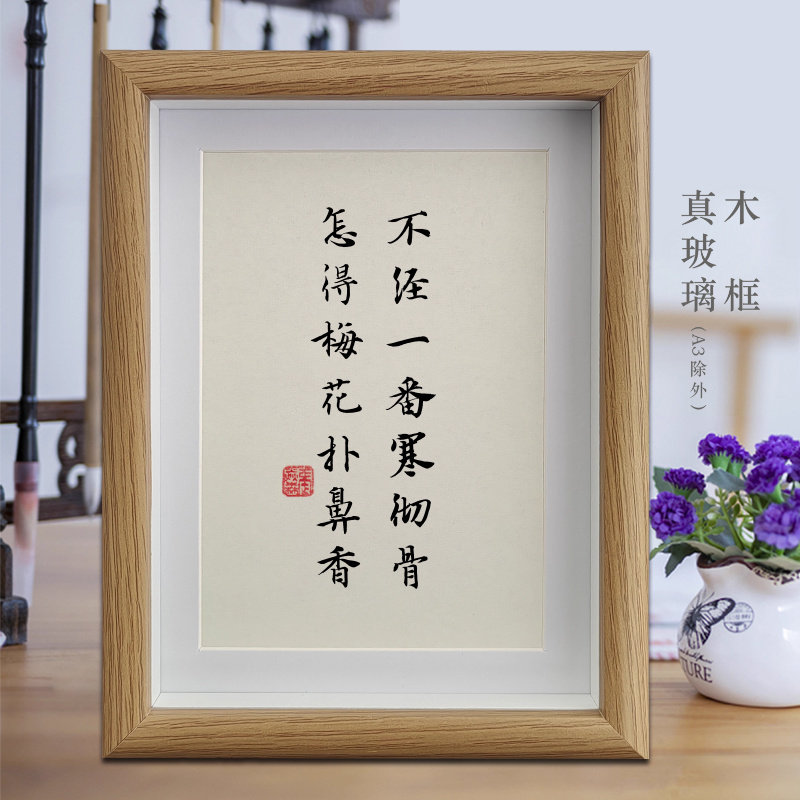 不经一番寒彻骨
怎得梅花扑鼻香
木框
真玻璃
(A3除外)
TURE